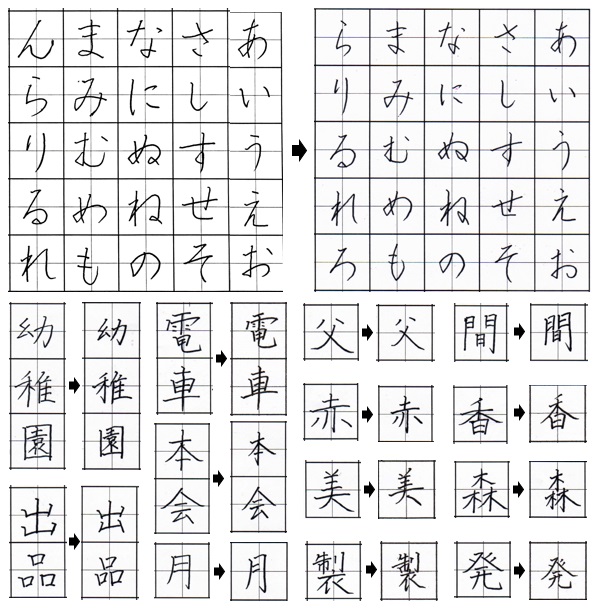 あいうえお
さしすせそ
なにぬねの
まみむめも
んらりるれ
あいうえお
さしすせそ
なにぬねの
まみむめも
らりるれろ
幼稚園
幼稚園
電車
電車
父
父
間
間
赤
赤
香
香
本会
本会
美
美
森
森
出品
出品
月
月
製
製
発
発